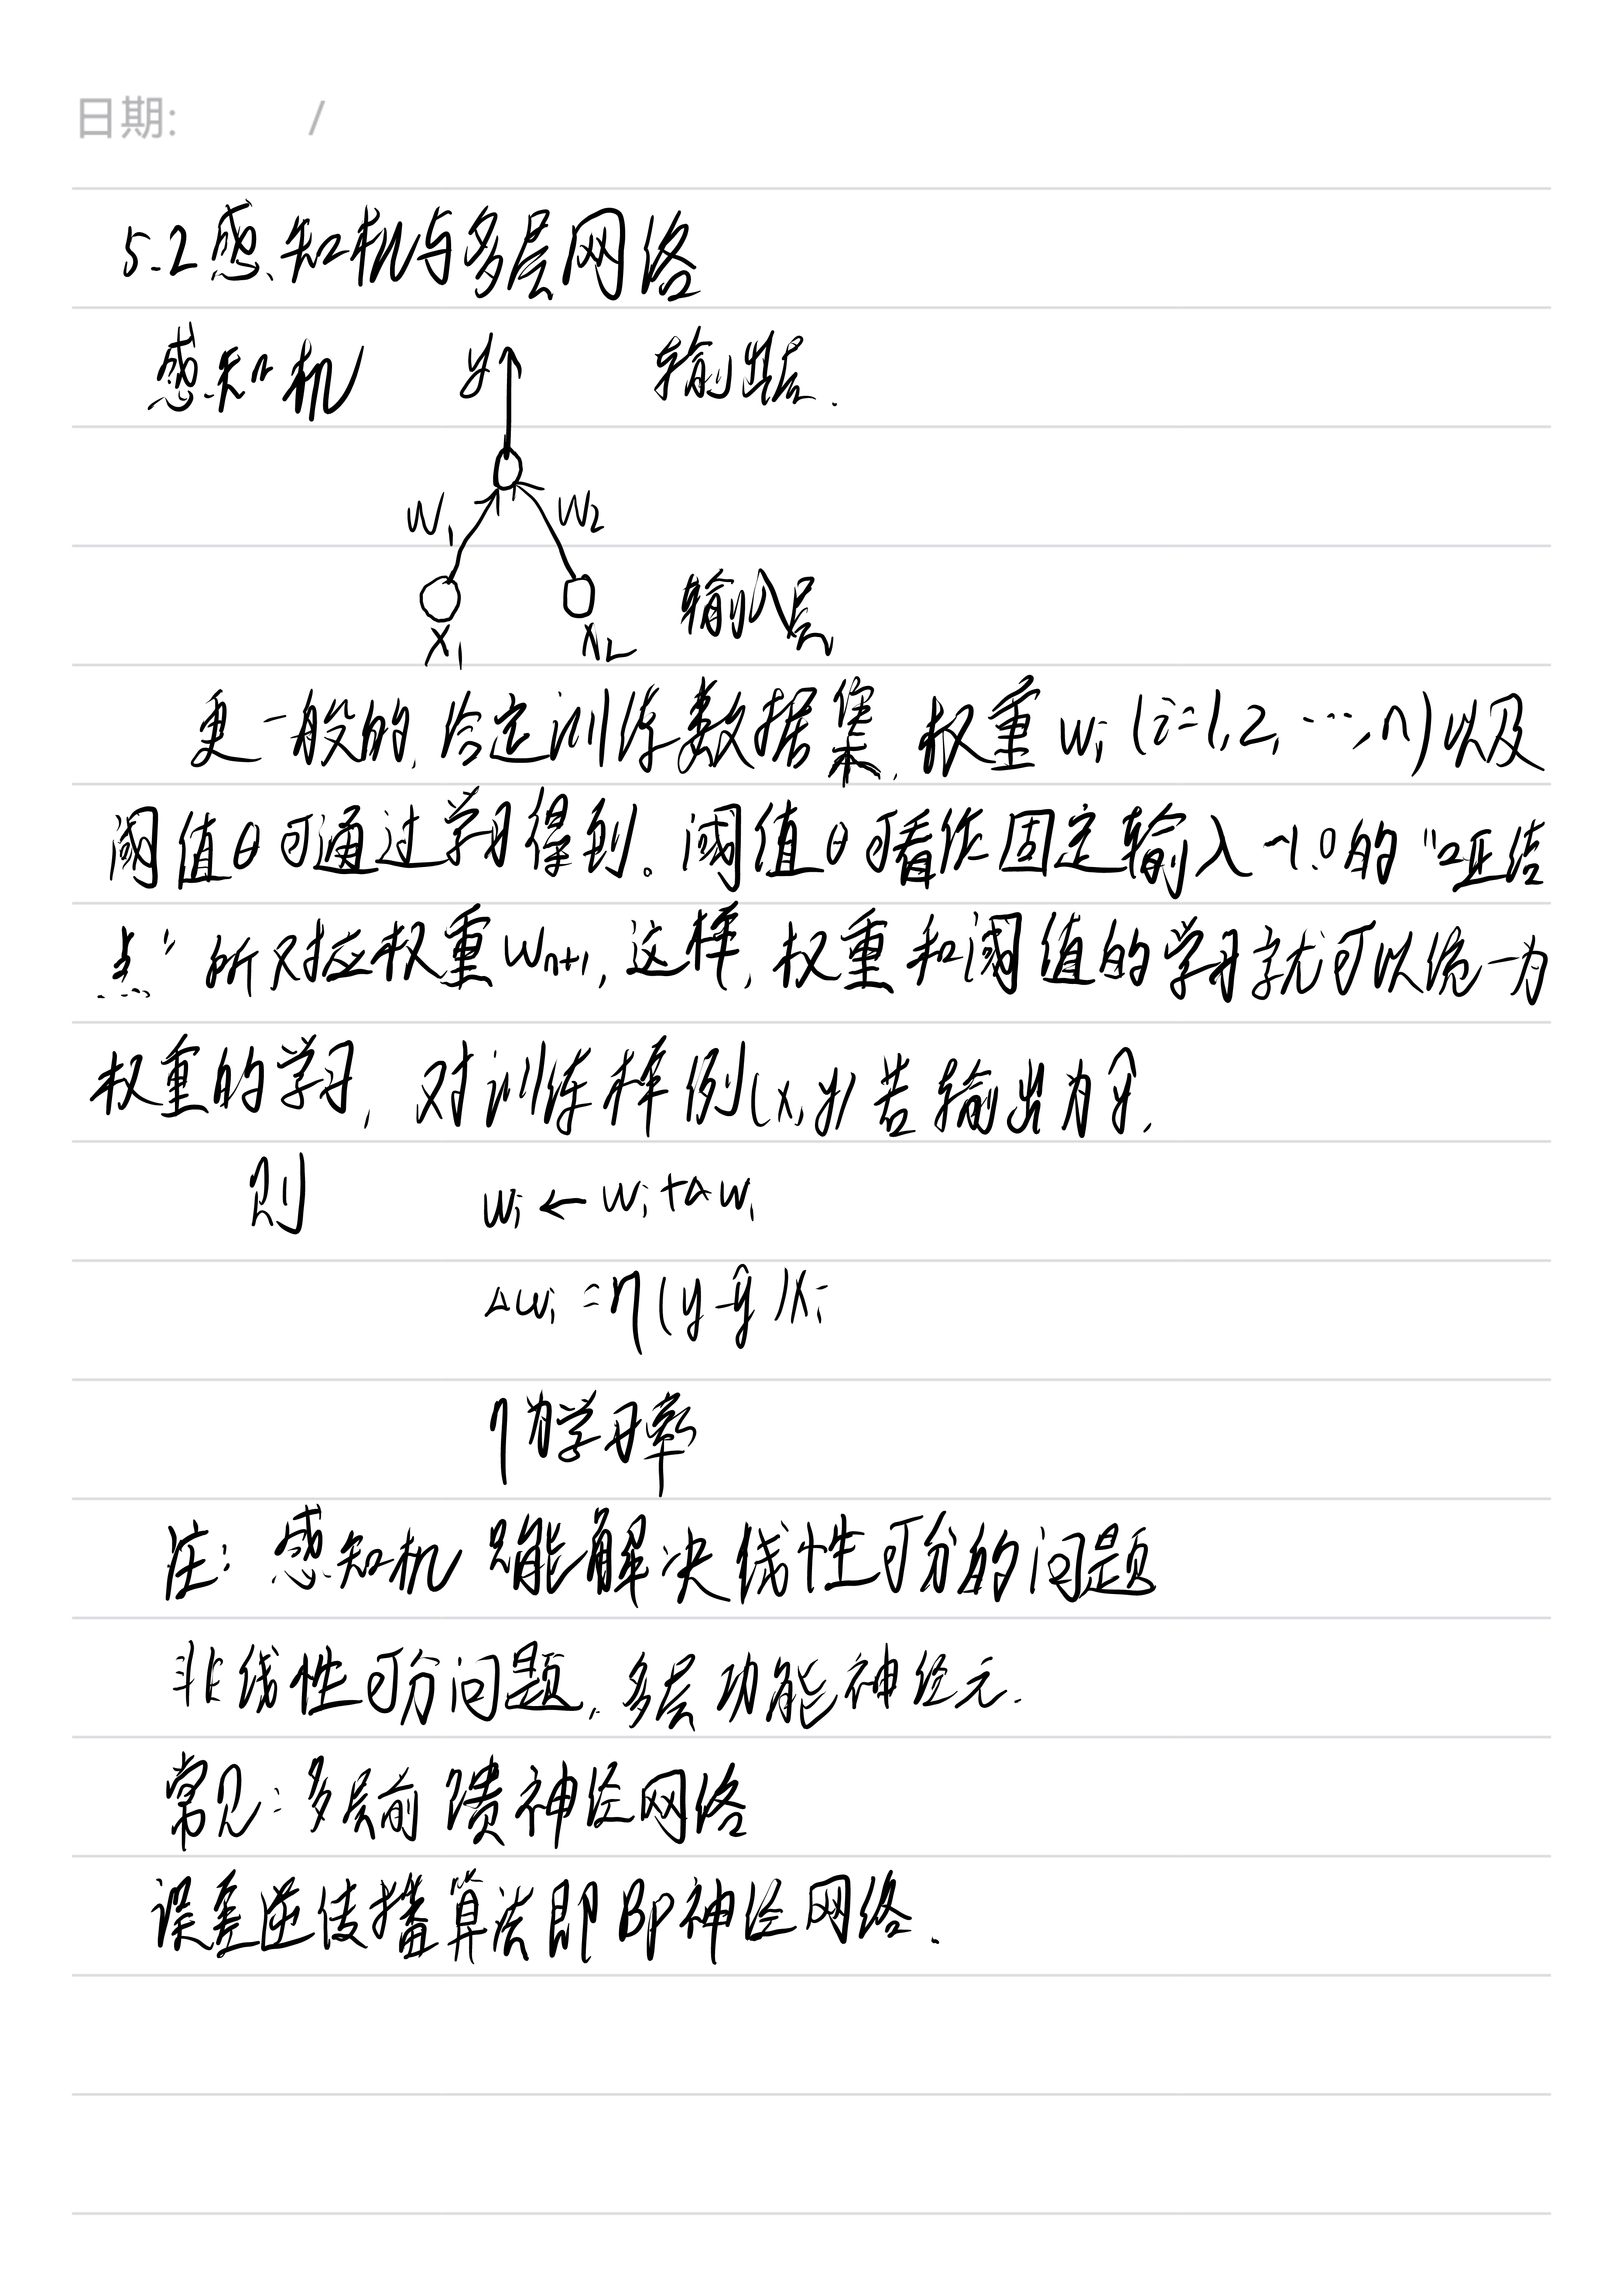 日期: /
5.2感知机与多层网络
感知机 y 输出层.
w₁ w₂
x₁ x₂ 输入层
更一般的,给定训练数据集,权重wᵢ(i=1,2,…,n)以及
阈值θ可通过学习得到。阈值θ可看作固定输入-1.0的“哑结
点”所对应权重wₙ₊₁,这样,权重和阈值的学习就可以统一为
权重的学习,对训练样例(x,y)若输出为ŷ,
则 wᵢ←wᵢ+△wᵢ
△wᵢ=η(y-ŷ)xᵢ
η为学习率
注:感知机只能解决线性可分的问题
非线性可分问题,多层功能神经元.
常见:多层前馈神经网络
误差逆传播算法即BP神经网络.